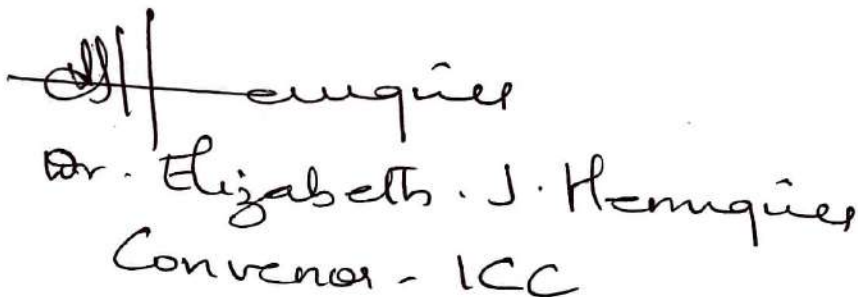 Henriques
Dr. Elizabeth. J. Henriques
Convenor - ICC